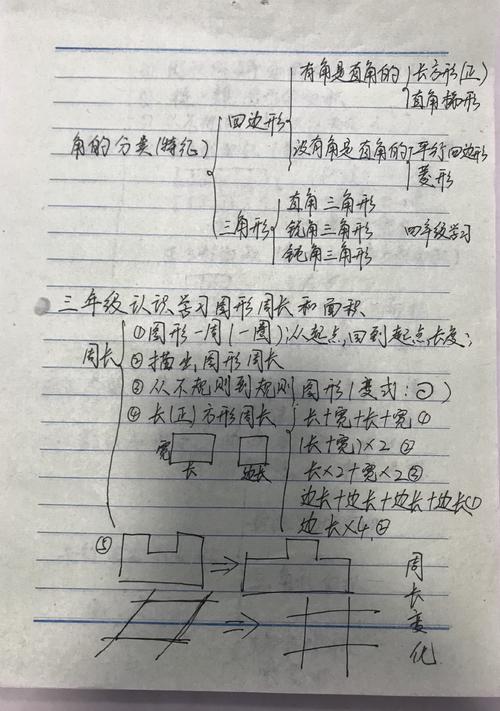 有角是直角的 长方形(正)
直角梯形
四边形
角的分类(特征)
没有角是直角的 平行四边形
菱形
直角三角形
三角形 锐角三角形 四年级学习
钝角三角形
三年级认识学习图形周长和面积
周长 ①图形一周(一圈):从起点,回到起点,长度;
②描出图形周长
③从不规则到规则图形(变式:)
④长(正)方形周长 长+宽+长+宽①
宽 (长+宽)×2 ②
长 边长 长×2+宽×2③
边长+边长+边长+边长①
边长×4,②
⑤
周长变化